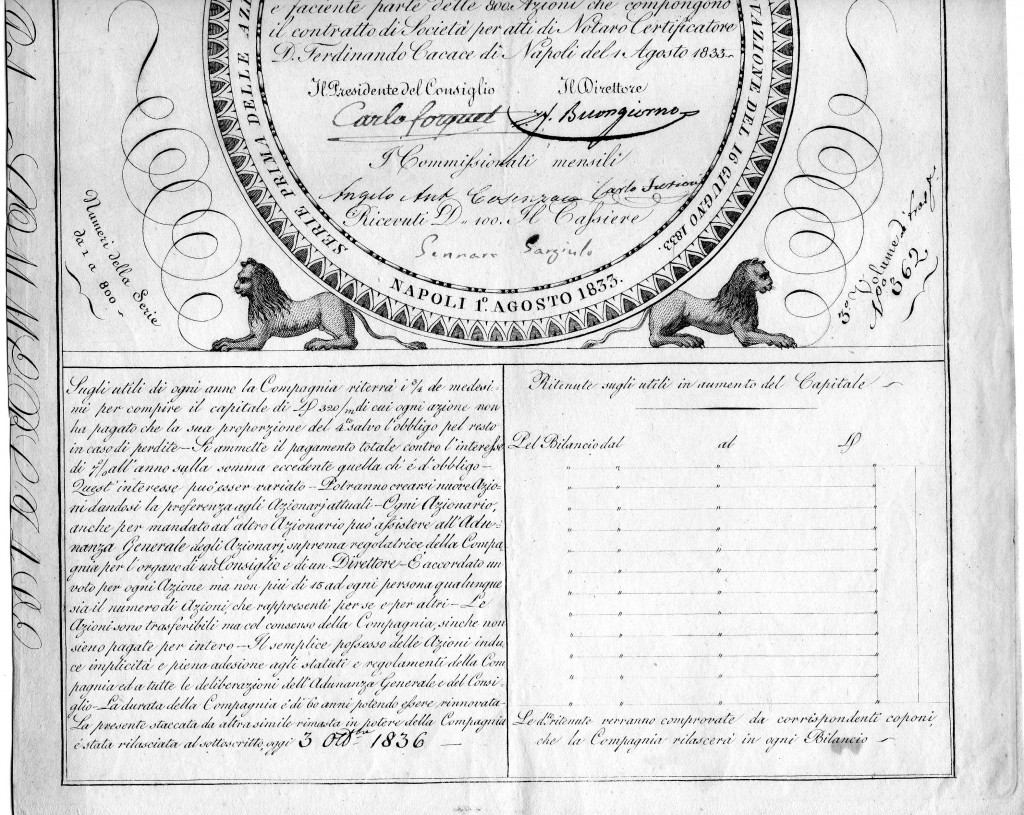 e faciente parte delle 800 Azioni che compongono
il contratto di Società per atti di Notaro Certificatore
D. Ferdinando Cacace di Napoli del 1 Agosto 1833
Il Presidente del Consiglio Il Direttore
Carlo Forquet Buongiorno
I Commissionati mensili
Angelo Ant. Carlo
Ricevuti D. 100. Il Cassiere
Gennaro Gargiulo
SERIE PRIMA DELLE AZI
VAZIONE DEL 16 GIUGNO 1833.
NAPOLI 1º. AGOSTO 1833.
Numeri della Serie
da 1 a 800
3º. Volume di trasf.
Nº 362
Sugli utili di ogni anno la Compagnia riterrà i 3/4 de medesi-
mi per compire il capitale di D 320/m di cui ogni azione non
ha pagato che la sua proporzione del 4to salvo l'obbligo pel resto
in caso di perdite – Si ammette il pagamento totale contro l'interesse
di all'anno sulla somma eccedente quella ch'é d'obbligo –
Quest'interesse può esser variato – Potranno crearsi nuove Azio-
ni dandosi la preferenza agli Azionarj attuali – Ogni Azionario,
anche per mandato ad altro Azionario può assistere all'Adu-
nanza Generale degli Azionarj, suprema regolatrice della Compa-
gnia per l'organo di un Consiglio e di un Direttore – È accordato un
voto per ogni Azione ma non più di 15 ad ogni persona qualunque
sia il numero di Azioni, che rappresenti per se e per altri – Le
Azioni sono trasferibili ma col consenso della Compagnia, sinche non
sieno pagate per intero – Il semplice possesso delle Azioni indu-
ce implicità e piena adesione agli statuti e regolamenti della Com-
pagnia ed a tutte le deliberazioni dell'Adunanza Generale e del Consi-
glio – La durata della Compagnia é di 60 anni potendo essere rinnovata –
La presente staccata da altra simile rimasta in potere della Compagnia
é stata rilasciata al sottoscritto, oggi 3 Ottbre 1836 –
Ritenute sugli utili in aumento del Capitale
Pel Bilancio dal al D
Le dte. ritenute verranno comprovate da corrispondenti coponi,
che la Compagnia rilascerà in ogni Bilancio